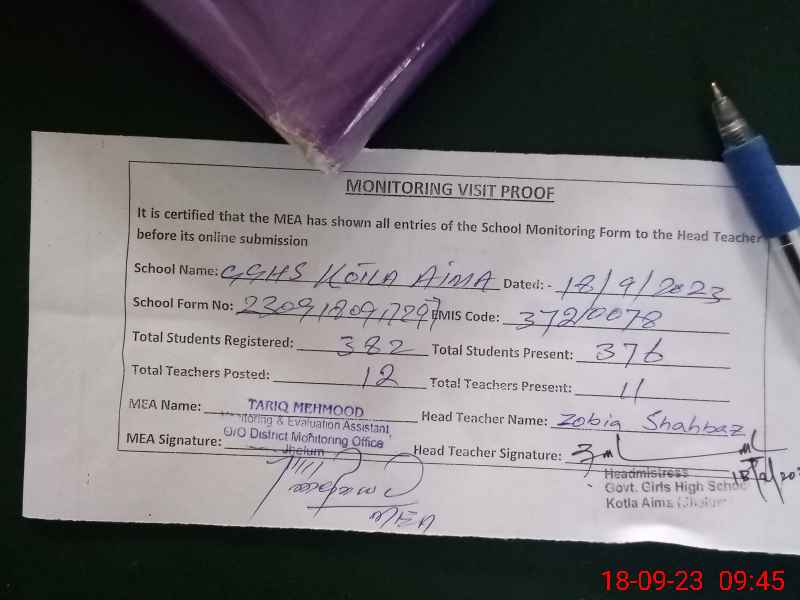 MONITORING VISIT PROOF
It is certified that the MEA has shown all entries of the School Monitoring Form to the Head Teacher
before its online submission
School Name: GGHS KOTLA AIMA Dated: - 18/9/2023
School Form No: EMIS Code: 37210078
Total Students Registered: 382 Total Students Present: 376
Total Teachers Posted: 12 Total Teachers Present: 11
MEA Name: TARIQ MEHMOOD Head Teacher Name: Zobia Shahbaz
Monitoring & Evaluation Assistant
O/O District Monitoring Office
Jhelum
MEA Signature: Head Teacher Signature:
Headmistress
Govt. Girls High School
Kotla Aima (Jhelum)
MEA
18-09-23 09:45